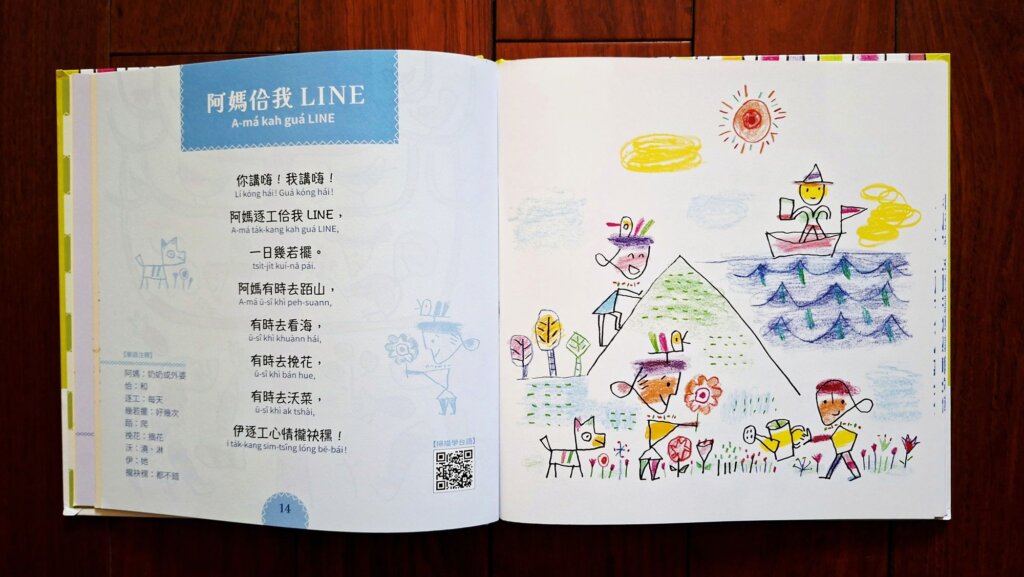 阿媽佮我 LINE
A-má kah guá LINE
你講嗨！我講嗨！
Lí kóng hái! Guá kóng hái!
阿媽逐工佮我 LINE，
A-má ta̍k-kang kah guá LINE,
一日幾若擺。
tsi̍t-ji̍t kuí-nā pái.
阿媽有時去𬦰山，
A-má ū-sî khì peh-suann,
有時去看海，
ū-sî khì khuànn hái,
有時去挽花，
ū-sî khì bán hue,
有時去沃菜，
ū-sî khì ak tshài,
伊逐工心情攏袂䆀！
i ta̍k-kang sim-tsîng lóng bē-bái!
【華語注釋】
阿媽：奶奶或外婆
佮：和
逐工：每天
幾若擺：好幾次
𬦰：爬
挽花：摘花
沃：澆、淋
伊：她
攏袂䆀：都不錯
【掃描學台語】
14